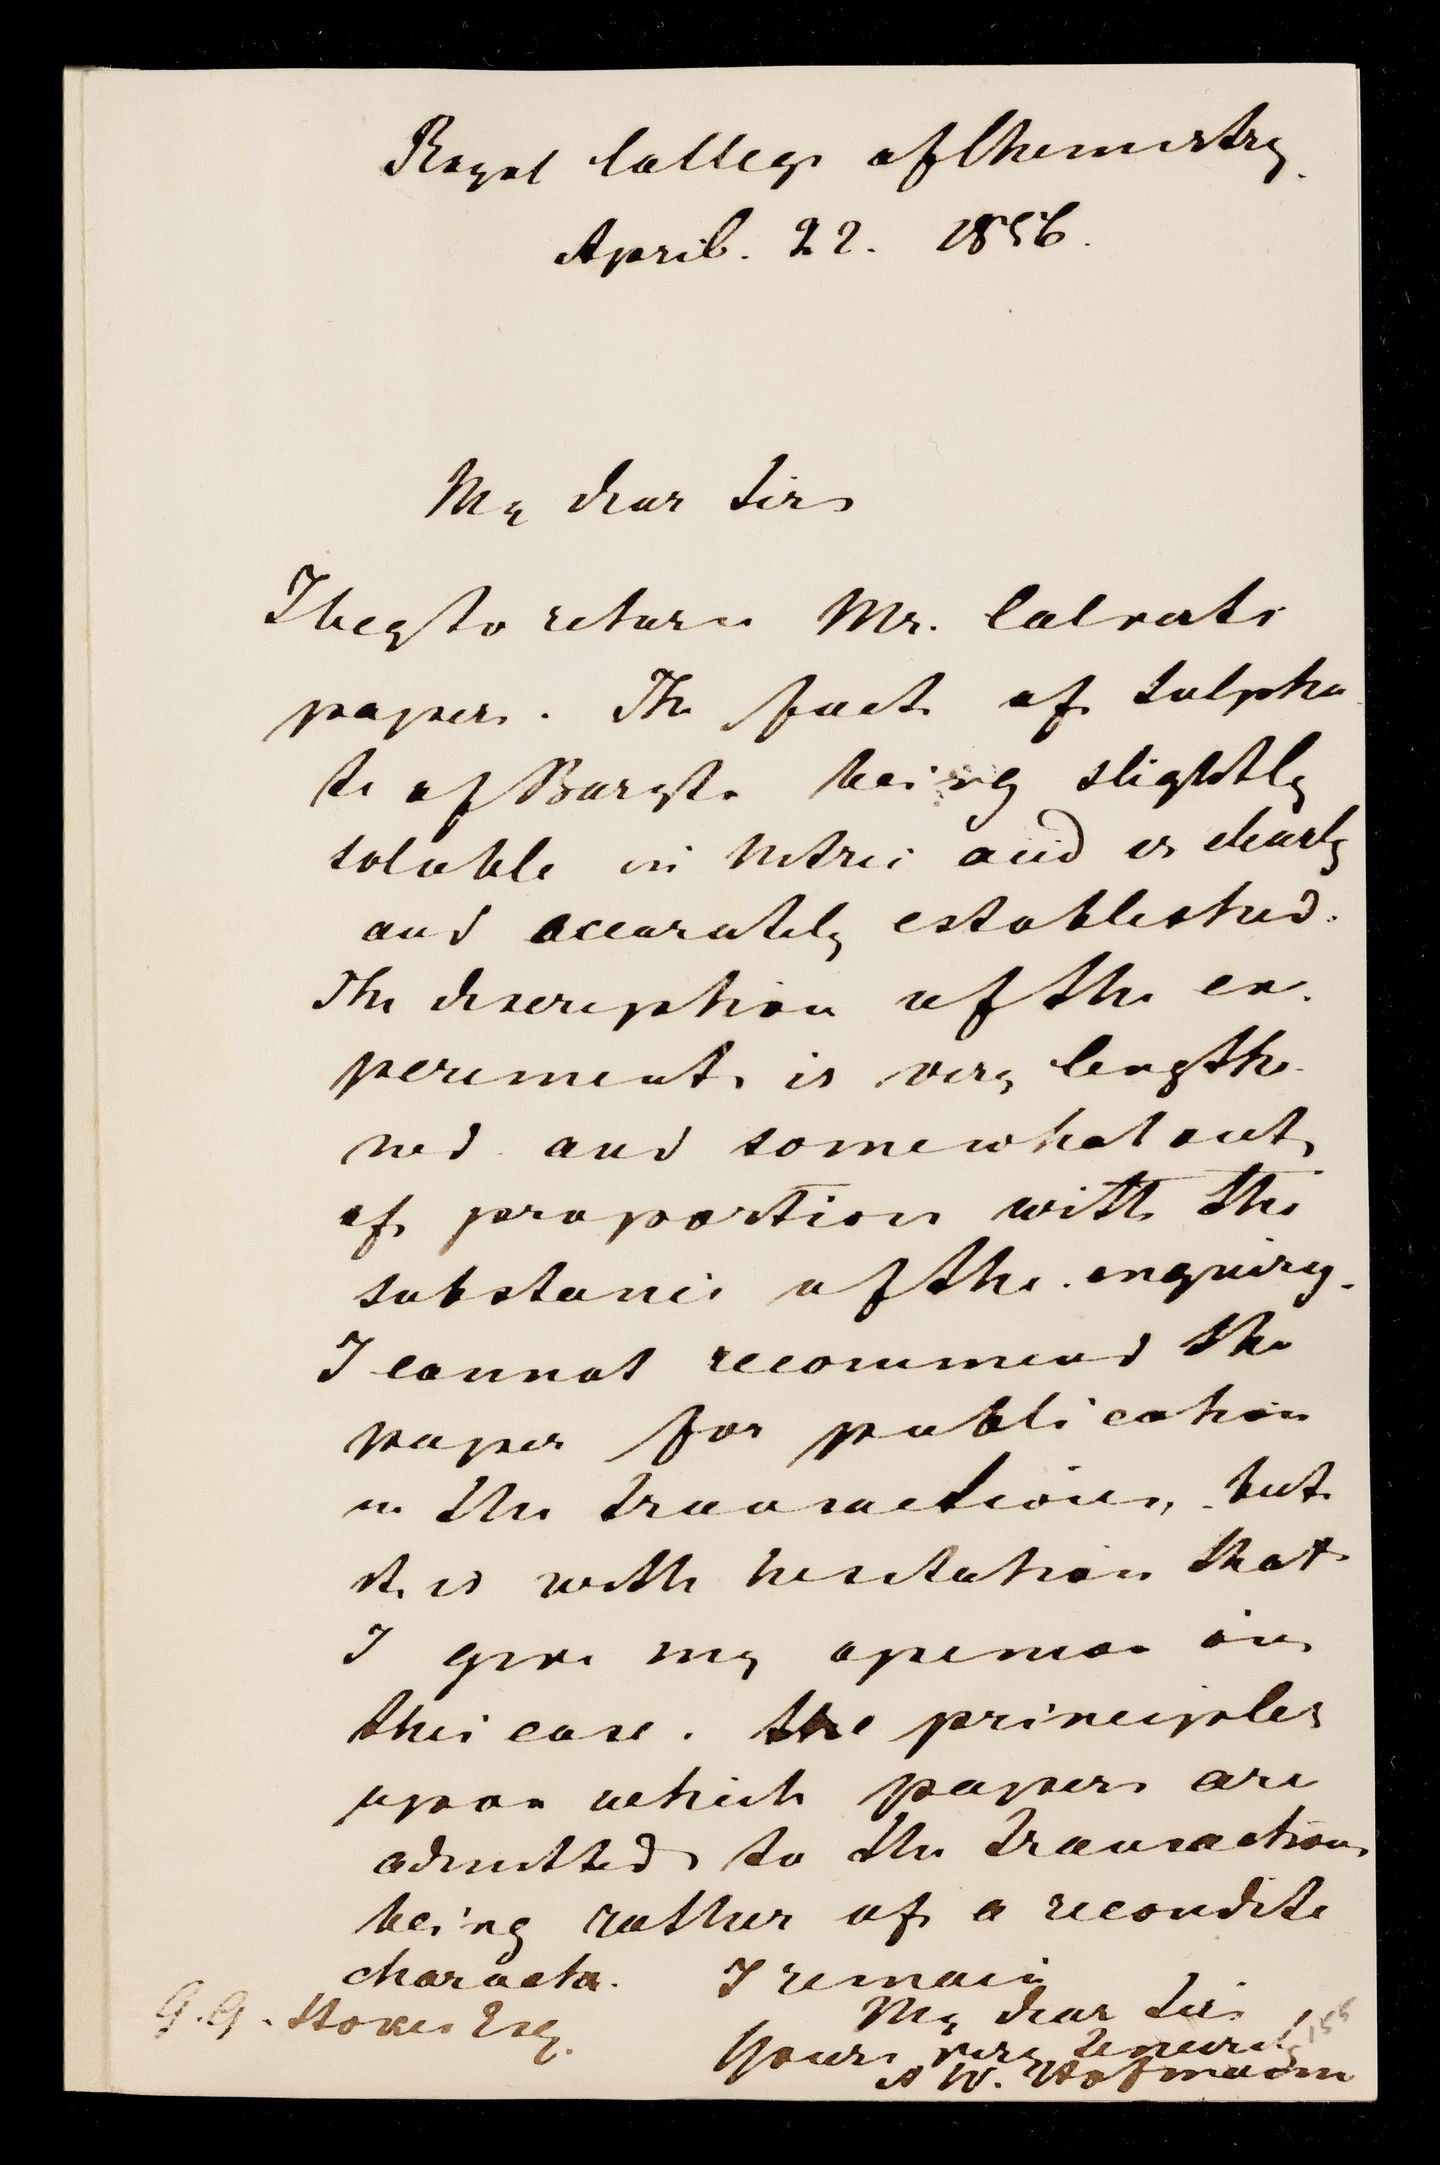 Royal College of Chemistry.
April. 22. 1856.
My dear Sir
I beg to return Mr. Calverts
paper. The fact of Sulpha
te of Baryta being slightly
soluble in Nitric acid is clearly
and accurately established.
The description of the ex-
periments is very lengthe-
ned and somewhat out
of proportion with the
substance of the enquiry.
I cannot recommend the
paper for publication
in the Transactions, but
it is with hesitation that
I give my opinion in
this case. the principles
upon which papers are
admitted to the Transactions
being rather of a recondite
character. I remain
My dear Sir
G. G. Stokes Esq. Yours very sincerely
A W. Hofmann
155